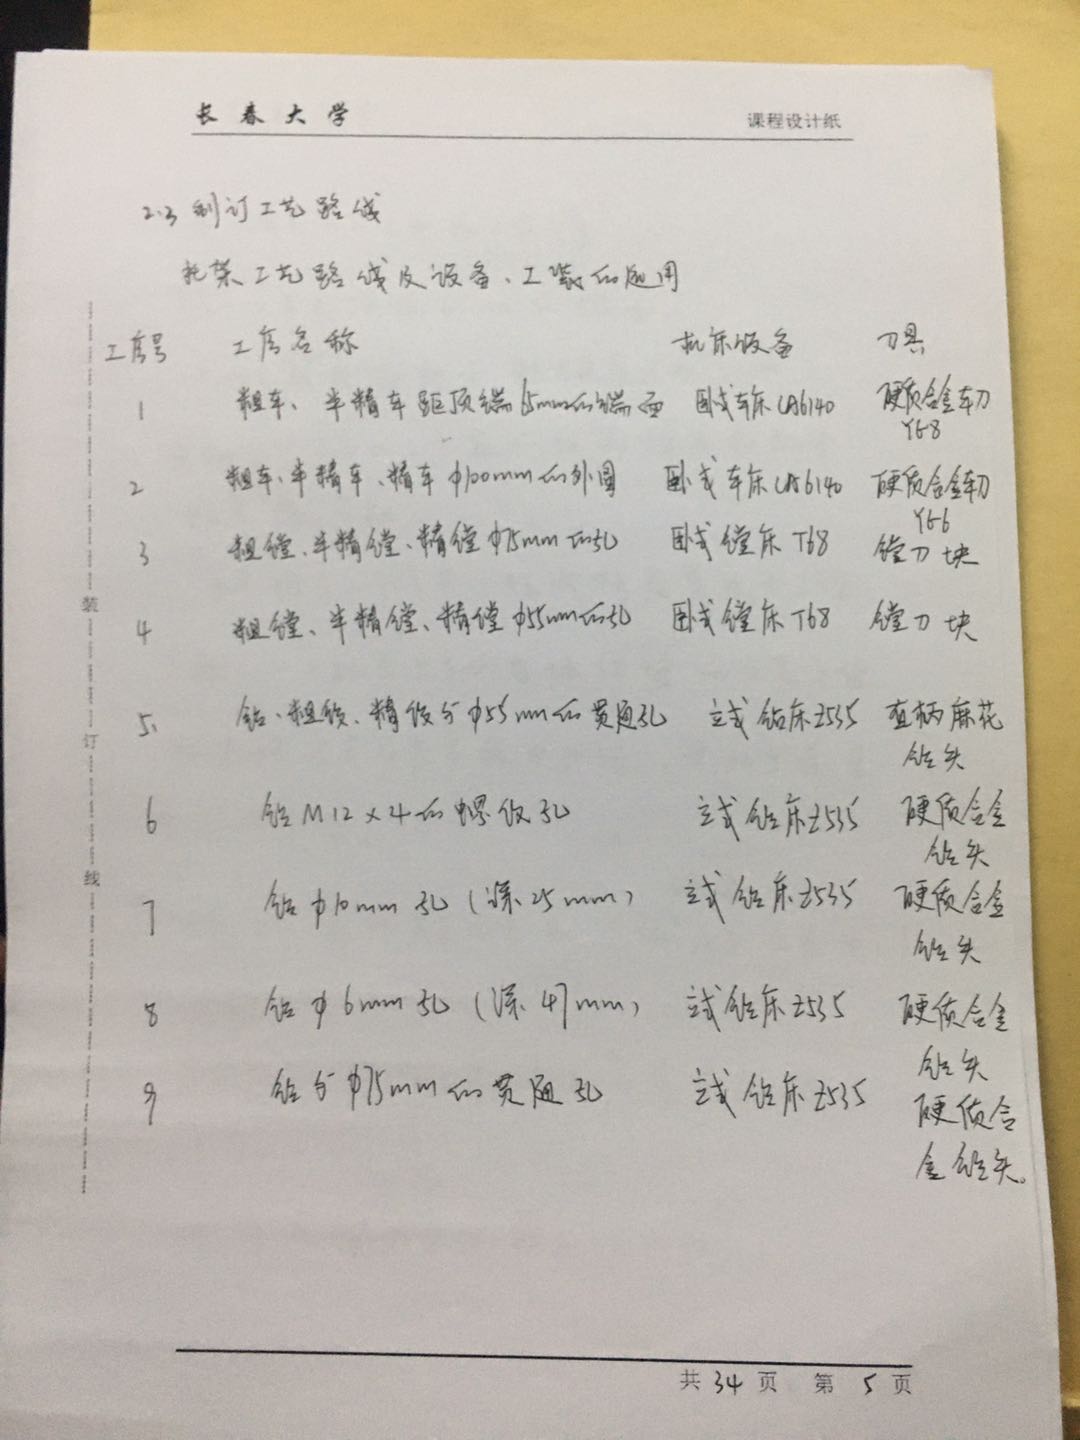 长春大学 课程设计纸
2.3 制订工艺路线
托架工艺路线及设备、工装的选用
工序号 工序名称 机床设备 刀具
1 粗车、半精车距顶端15mm的端面 卧式车床CA6140 硬质合金车刀
YG8
2 粗车、半精车、精车φ100mm的外圆 卧式车床CA6140 硬质合金车刀
YG6
3 粗镗、半精镗、精镗φ75mm的孔 卧式镗床T68 镗刀块
4 粗镗、半精镗、精镗φ55mm的孔 卧式镗床T68 镗刀块
5 钻、粗铰、精铰分φ55mm的贯通孔 立式钻床Z535 直柄麻花
钻头
6 钻M12×4的螺纹孔 立式钻床Z535 硬质合金
钻头
7 钻φ10mm孔(深25mm) 立式钻床Z535 硬质合金
钻头
8 钻φ6mm孔(深47mm) 立式钻床Z535 硬质合金
钻头
9 钻分φ75mm的贯通孔 立式钻床Z535 硬质合
金钻头。
装
订
线
共34页 第5页